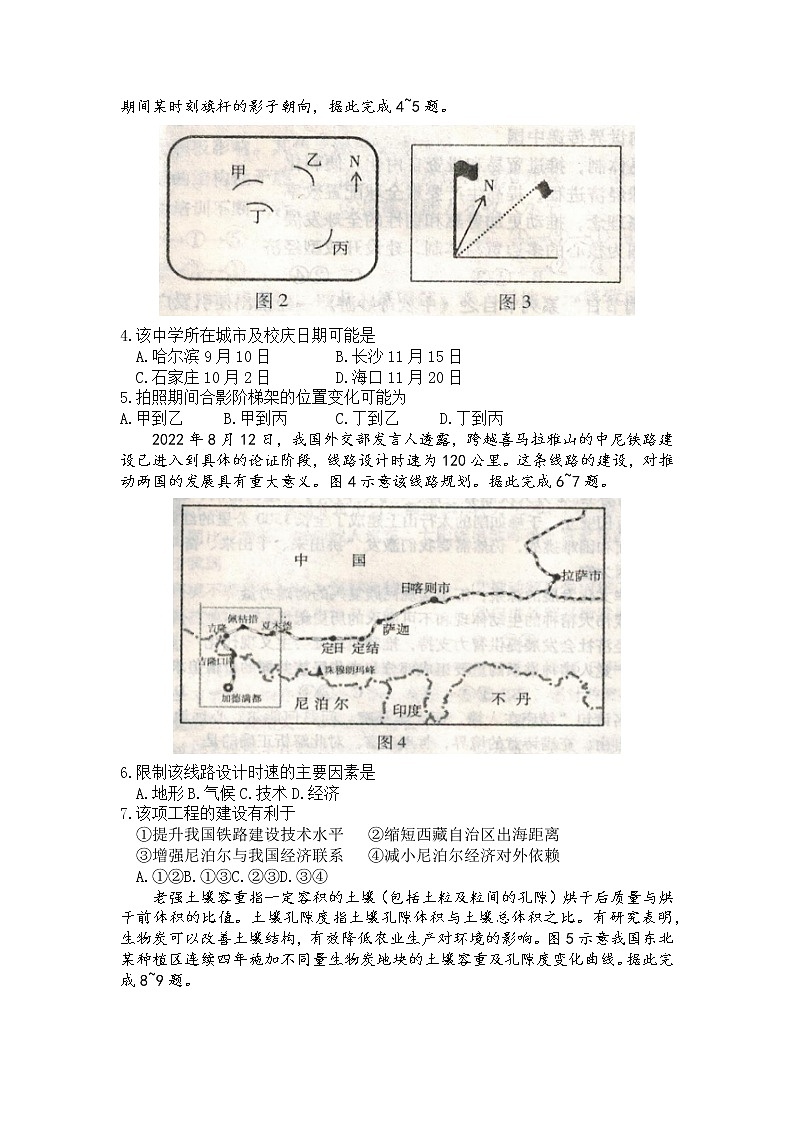 期间某时刻旗杆的影子朝向，据此完成4~5题。
甲
乙
N
丁
丙
图2
N
图3
4.该中学所在城市及校庆日期可能是
A.哈尔滨9月10日 B.长沙11月15日
C.石家庄10月2日 D.海口11月20日
5.拍照期间合影阶梯架的位置变化可能为
A.甲到乙 B.甲到丙 C.丁到乙 D.丁到丙
2022年8月12日，我国外交部发言人透露，跨越喜马拉雅山的中尼铁路建
设已进入到具体的论证阶段，线路设计时速为120公里。这条线路的建设，对推
动两国的发展具有重大意义。图4示意该线路规划。据此完成6~7题。
中 国
拉萨市
日喀则市
佩枯措
吉隆
夏木德
萨迦
定日 定结
吉隆口岸
珠穆朗玛峰
加德满都
尼泊尔
印度
不丹
图4
6.限制该线路设计时速的主要因素是
A.地形B.气候C.技术D.经济
7.该项工程的建设有利于
①提升我国铁路建设技术水平 ②缩短西藏自治区出海距离
③增强尼泊尔与我国经济联系 ④减小尼泊尔经济对外依赖
A.①②B.①③C.②③D.③④
老强土壤容重指一定容积的土壤（包括土粒及粒间的孔隙）烘干后质量与烘
干前体积的比值。土壤孔隙度指土壤孔隙体积与土壤总体积之比。有研究表明，
生物炭可以改善土壤结构，有效降低农业生产对环境的影响。图5示意我国东北
某种植区连续四年施加不同量生物炭地块的土壤容重及孔隙度变化曲线。据此完
成8~9题。